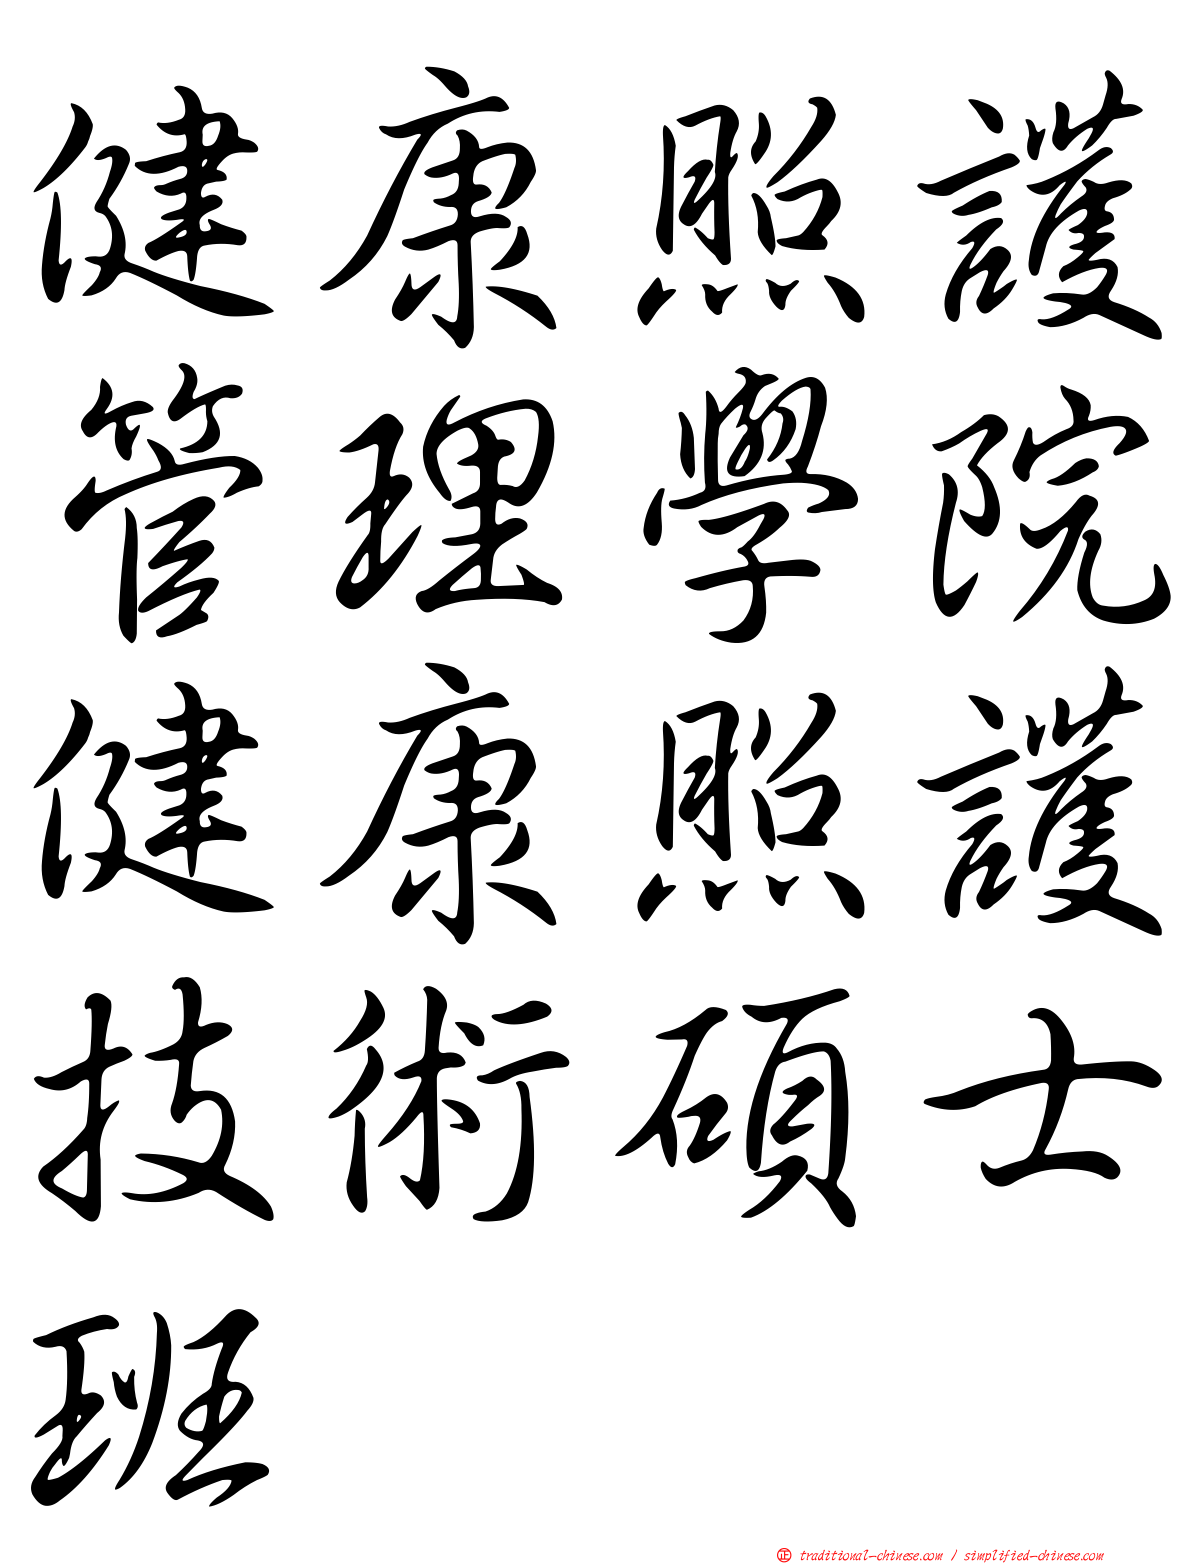 健康照護
管理學院
健康照護
技術碩士
班
㊣ traditional-chinese.com / simplified-chinese.com